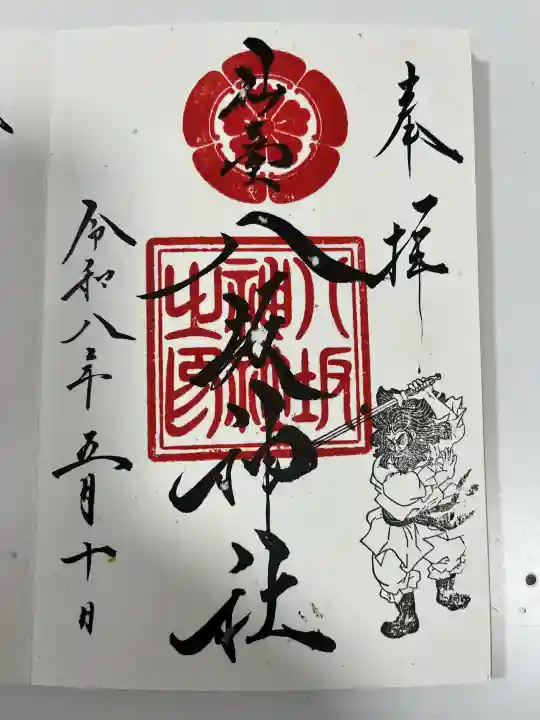 奉拝
八坂神社
八坂
神社
之印
令和八年五月十日